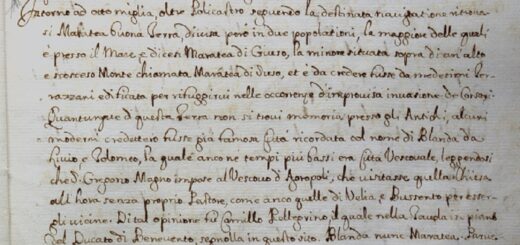 Intorno ad otto miglia, oltre Policastro seguendo la destinata navigatione ritrova-
si Maratea buona Terra, divisa però in due populationi, la maggiore delle quali
è presso il Mare e dicesi Maratea di Giuso, la minore situata sopra di un alto
e scosceso Monte chiamata Maratea di suso, et è da creder fusse da medesimi Ter-
razzani edificata per rifuggirvi nelle occorrenze d'improvisa invasione de Corsari
Quantunque di questa Terra non si trovi memoria presso gli Antichi, alcuni
moderni credettero fusse già famosa Città ricordata col nome di Blanda da
Livio e Tolomeo, la quale anco ne tempi più bassi era Città Vescovale, leggendosi
che S. Gregorio Magno impose al Vescovo d'Agropoli, che visitasse quella Chiesa
all'hora senza proprio Pastore, come anco quelle di Velia e Bussento per esser-
gli vicine. Di tal opinione fu Camillo Pellegrino il quale nella Tavola in piano
del Ducato di Benevento segnolla in questo sito. Blanda nunc Maratea.